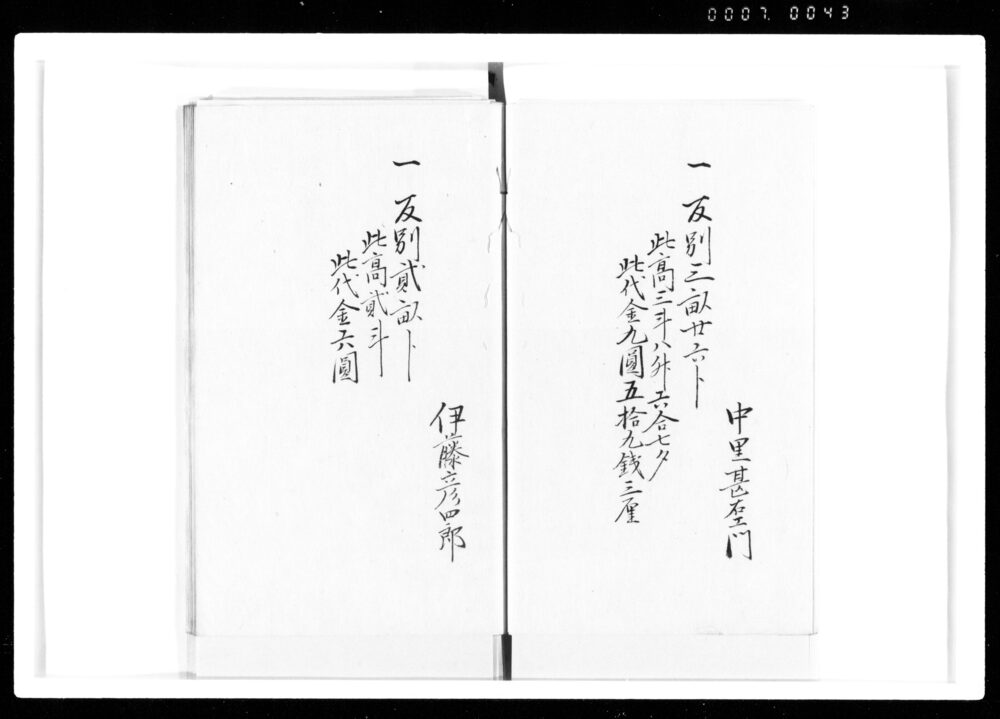 0007. 0043
中里甚右エ門
一 反別三畝廿六卜
此高三斗八升六合七夕
此代金九圓五拾九銭三厘
伊藤彦四郎
一 反別貳畝卜
此高貳斗
此代金六圓